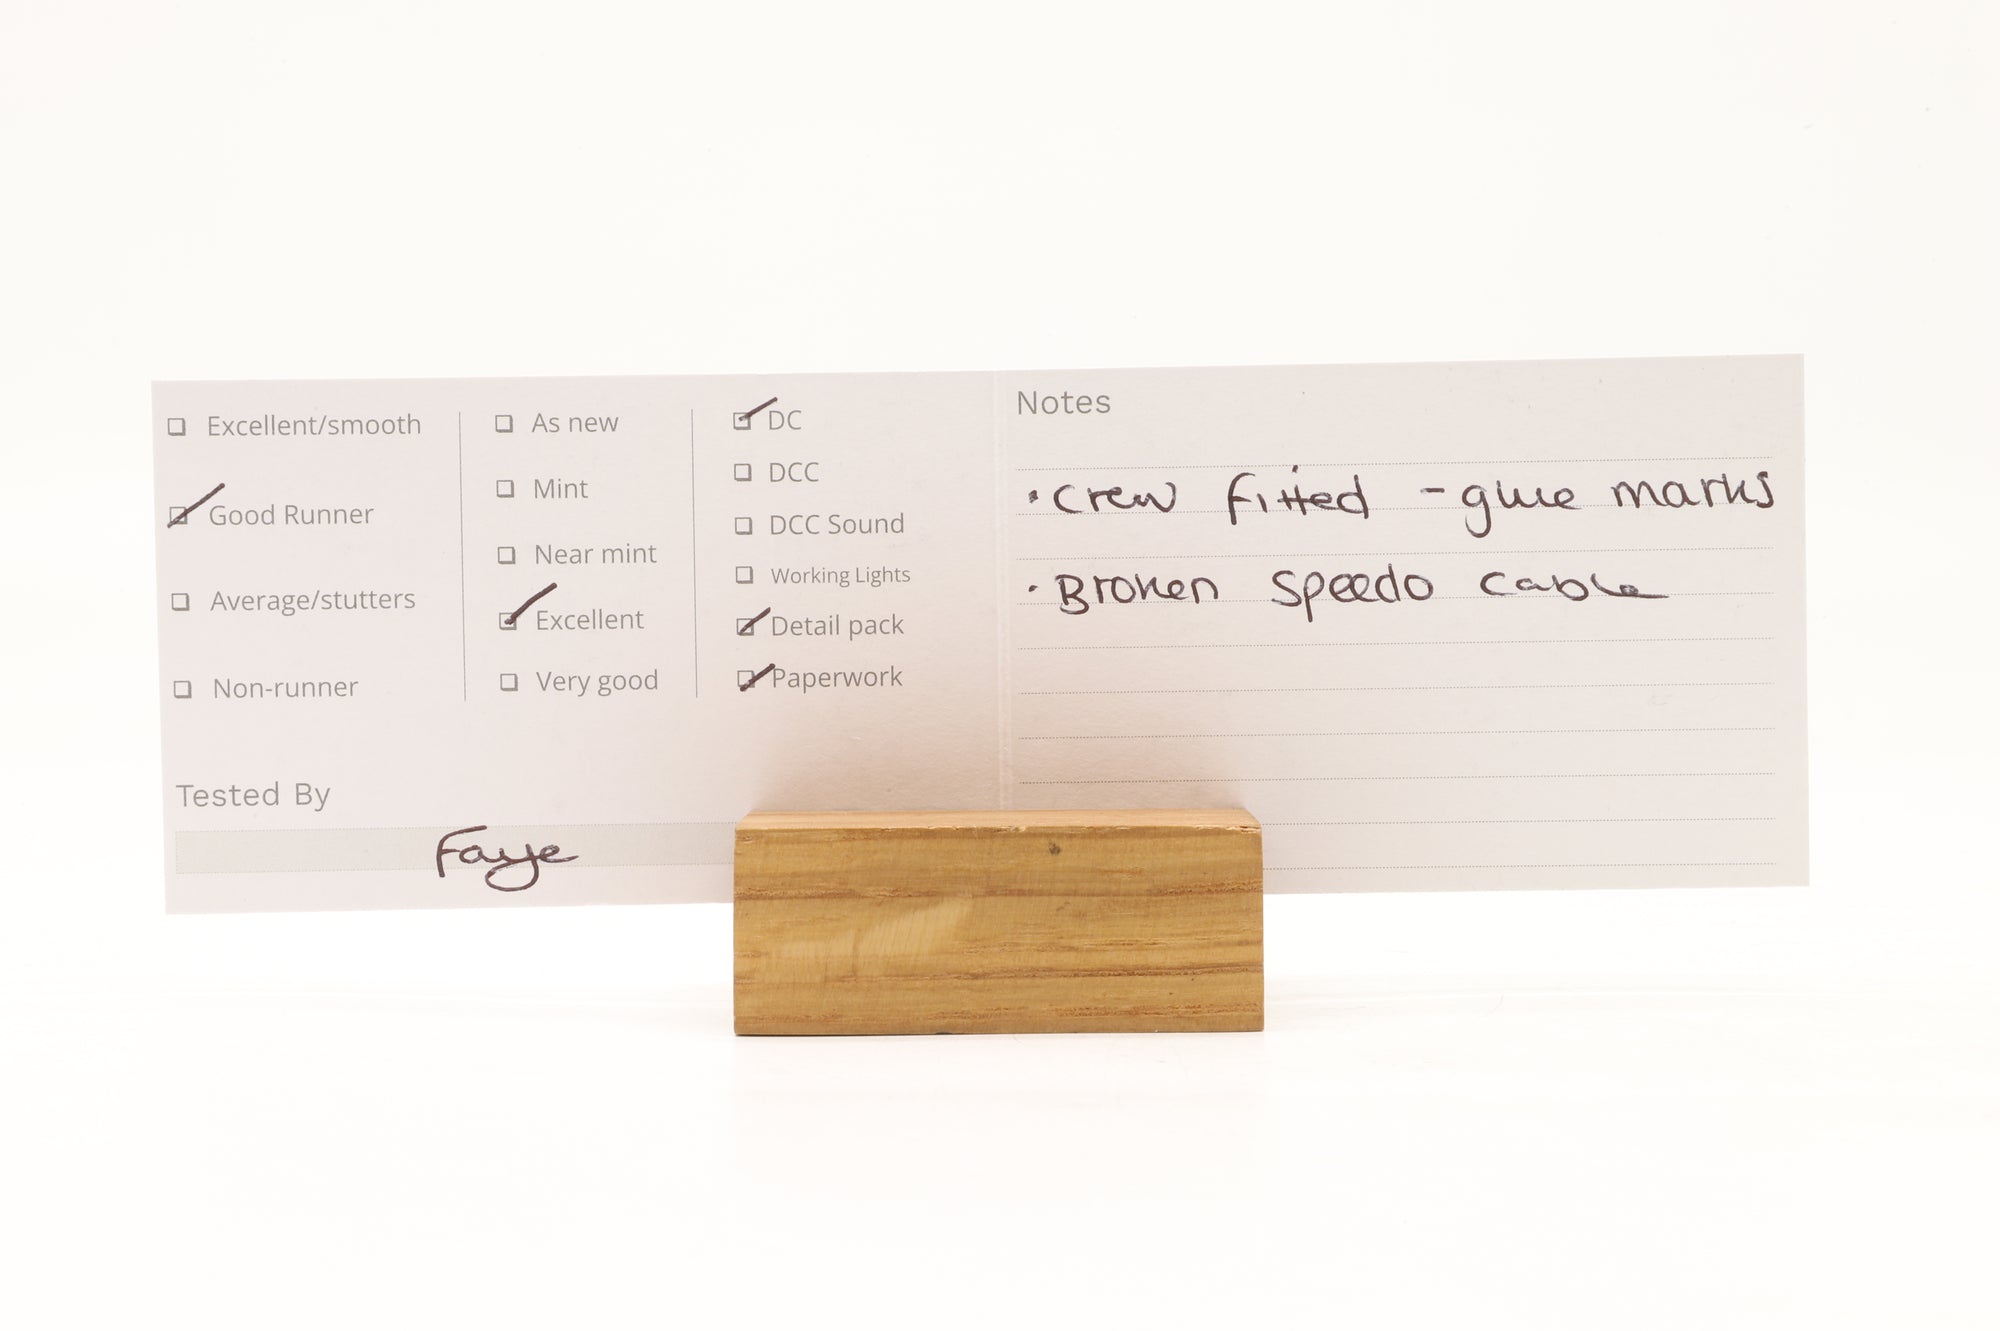 Excellent/smooth
Good Runner
Average/stutters
Non-runner
As new
Mint
Near mint
Excellent
Very good
DC
DCC
DCC Sound
Working Lights
Detail pack
Paperwork
Tested By
Faye
Notes
• Crew fitted - glue marks
• Broken speedo cable